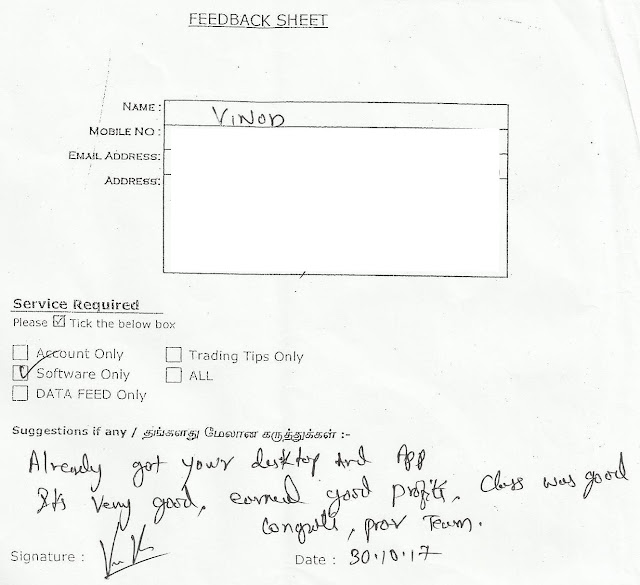 FEEDBACK SHEET
NAME : VINOD
MOBILE NO :
EMAIL ADDRESS:
ADDRESS:
Service Required
Please ☑ Tick the below box
☐ Account Only ☐ Trading Tips Only
☑ Software Only ☐ ALL
☐ DATA FEED Only
Suggestions if any / தங்களது மேலான கருத்துக்கள் :-
Already got your desktop And App
Its Very good, earned good Profits, Class was good
Team.
Signature : Date : 30.10.17